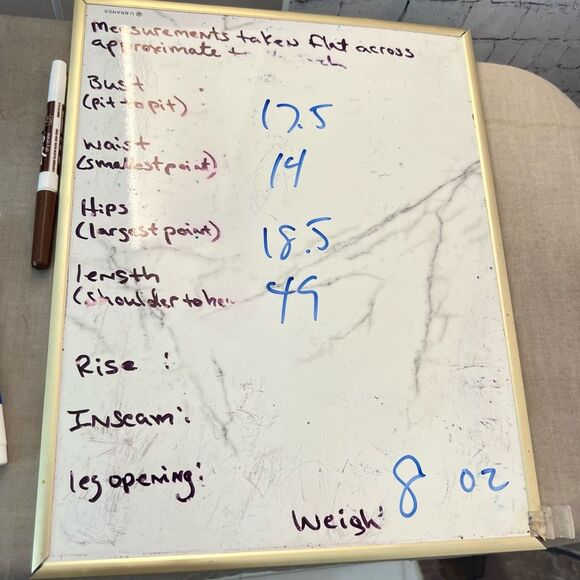 U BRANDS
Measurements taken flat across
approximate +
Bust
(pit to pit) 17.5
waist
(smallest point) 14
Hips
(largest point) 18.5
length
(shoulder to 49
Rise :
Inseam:
leg opening:
Weigh: 8 oz